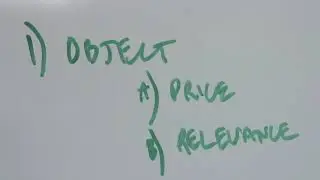 1) OBJECT
A) PRICE
B) RELEVANCE